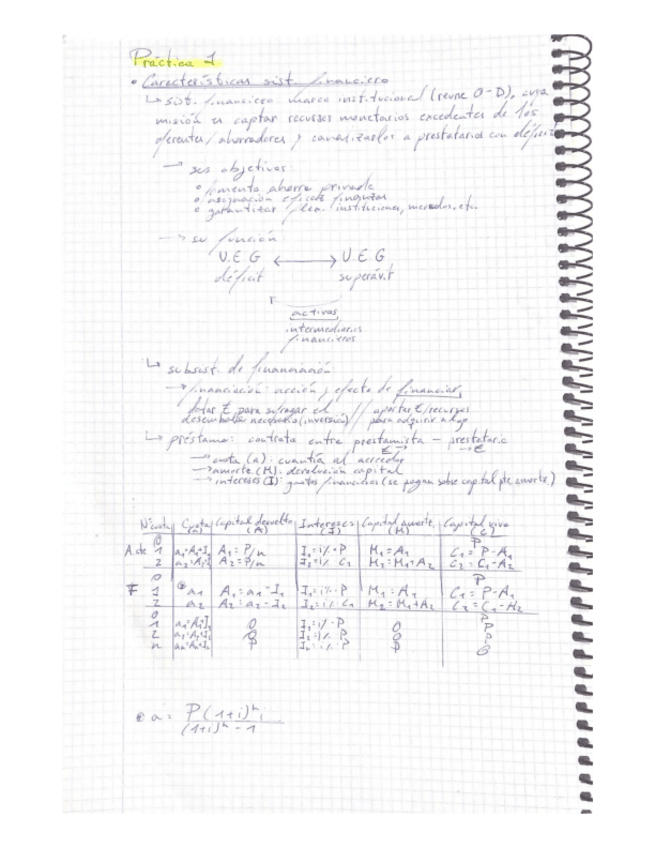 Práctica 1
• Características sist. financiero
↳ sist. financiero: marco institucional (reune O-D), cuya
misión es captar recursos monetarios excedentes de los
oferentes/ahorradores y canalizarlos a prestatarios con déficit
→ sus objetivos:
° fomento ahorro privado
° asignación eficaz
° garantizar instituciones, mercados, etc.
→ su función:
U.E.G ⟷ U.E.G
déficit superávit
activos,
intermediarios
financieros
↳ subsist. de financiación:
→ financiación: acción y efecto de financiar,
dotar € para sufragar el // aportar €/recursos
desembolso necesario (inversión) // para adquirir algo
↳ préstamo: contrato entre prestamista - prestatario
€→ →€
→ cuota (a): cuantía al acreedor
→ amorte (M): devolución capital
→ intereses (I): gastos financieros (se pagan sobre capital pte amorte)
Nºcuota Cuota Capital devuelto Intereses Capital amorte. Capital vivo
(a) (A) (I) (M) (C)
0 P
A.de 1 a₁=A₁+I₁ A₁=P/n I₁=i%·P M₁=A₁ C₁=P-A₁
2 a₂=A₂+I₂ A₂=P/n I₂=i%·C₁ M₂=M₁+A₂ C₂=C₁-A₂
0 P
F 1 a₁ A₁=a₁-I₁ I₁=i%·P M₁=A₁ C₁=P-A₁
2 a₂ A₂=a₂-I₂ I₂=i%·C₁ M₂=M₁+A₂ C₂=C₁-M₂
0 P
1 a₁=A₁+I₁ 0 I₁=i%·P 0 P
2 a₂=A₂+I₂ 0 I₂=i%·P 0 P
n aₙ=Aₙ+Iₙ P Iₙ=i%·P P 0
a = P(1+i)ⁿ i
(1+i)ⁿ - 1